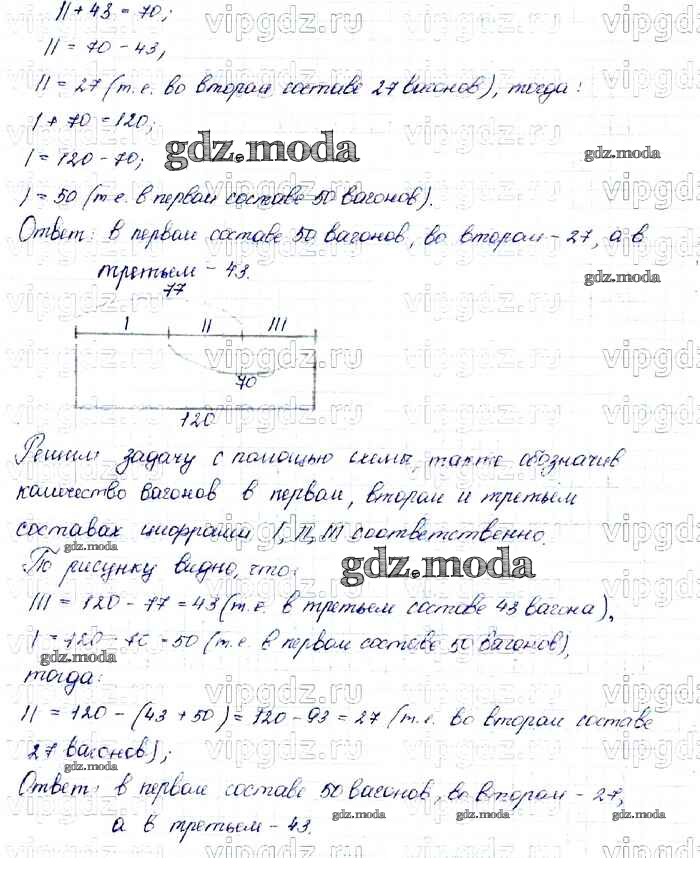 II + 43 = 70;
II = 70 - 43,
II = 27 (т.е. во втором составе 27 вагонов), тогда:
I + 70 = 120;
I = 120 - 70;
I = 50 (т.е. в первом составе 50 вагонов).
Ответ: в первом составе 50 вагонов, во втором - 27, а в
третьем - 43.
77
I II III
70
120
Решим задачу с помощью схемы, также обозначив
количество вагонов в первом, втором и третьем
составах цифрами I, II, III соответственно.
По рисунку видно, что:
III = 120 - 77 = 43 (т.е. в третьем составе 43 вагона),
I = 120 - 70 = 50 (т.е. в первом составе 50 вагонов),
тогда:
II = 120 - (43 + 50) = 120 - 93 = 27 (т.е. во втором составе
27 вагонов);
Ответ: в первом составе 50 вагонов, во втором - 27,
а в третьем - 43.
gdz.moda
vipgdz.ru